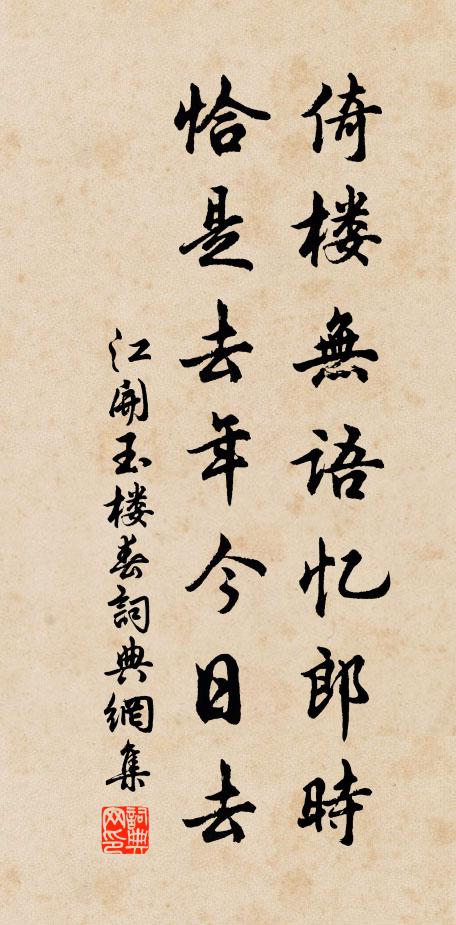 倚楼無語忆郎時
恰是去年今日去
江開玉楼春詞典網集
詞典網印